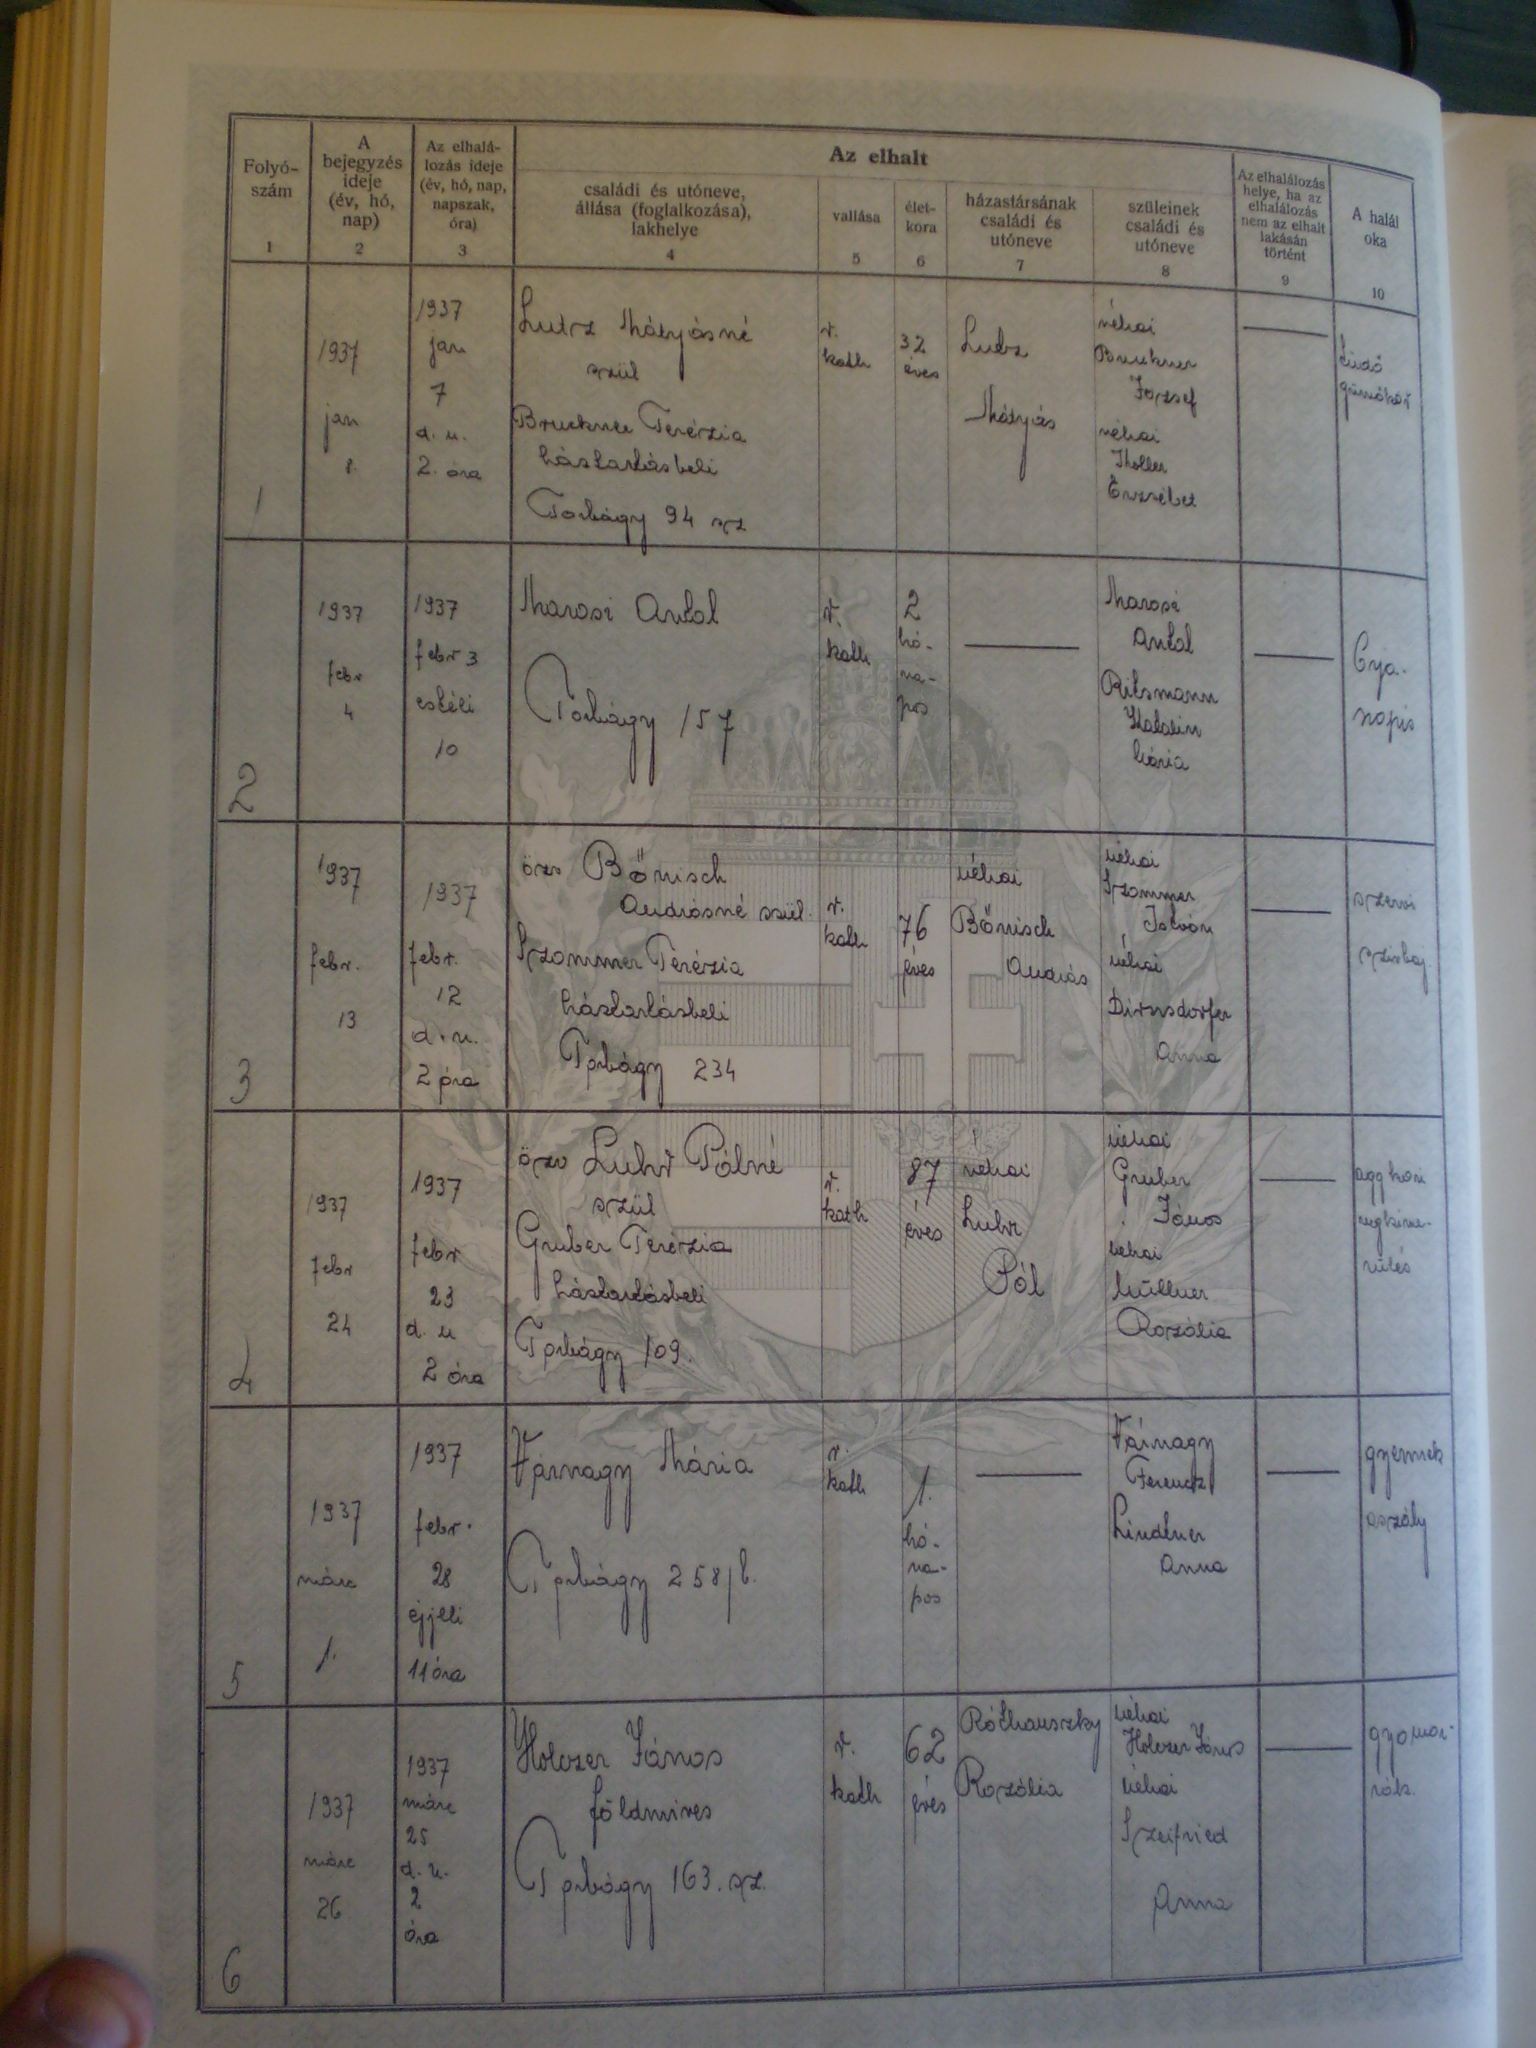 Folyó-
szám
1
A
bejegyzés
ideje
(év, hó,
nap)
2
Az elhalá-
lozás ideje
(év, hó, nap,
napszak,
óra)
3
Az elhalt
családi és utóneve,
állása (foglalkozása),
lakhelye
4
vallása
5
élet-
kora
6
házastársának
családi és
utóneve
7
szüleinek
családi és
utóneve
8
Az elhalálozás
helye, ha az
elhalálozás
nem az elhalt
lakásán
történt
9
A halál
oka
10
1
1937
jan
8.
1937
jan
7
d. u.
2. óra
Lutz Mátyásné
szül
Bruckner Terézia
háztartásbeli
Torbágy 94 sz
r.
kath
32
éves
Lutz
Mátyás
néhai
Bruckner
József
néhai
Erzsébet
tüdő
gümőkór
2
1937
febr
4
1937
febr 3
estéli
10
Marosi Antal
Torbágy 157
r.
kath
2
hó-
na-
pos
Marosi
Antal
Ritsmann
Katalin
Mária
3
1937
febr.
13
1937
febr.
12
d. u.
2 óra
özv Bőnisch
Andrásné szül.
Szommer Terézia
háztartásbeli
Torbágy 234
r.
kath
76
éves
néhai
Bőnisch
András
néhai
Szommer
István
néhai
Anna
szervi
szivbaj.
4
1937
febr
24
1937
febr
23
d. u
2 óra
özv Luhr Pálné
szül
Gruber Terézia
háztartásbeli
Torbágy 109.
r.
kath
87
éves
néhai
Luhr
Pál
néhai
Gruber
János
néhai
Müllner
Rozália
aggkori
végkime-
rülés
5
1937
márc
1.
1937
febr.
28
éjjeli
11 óra
Várnagy Mária
Torbágy 258/b.
r.
kath
1.
hó-
na-
pos
Várnagy
Ferencz
Lindtner
Anna
gyermek
aszály
6
1937
márc
26
1937
márc
25
d. u.
2
óra
Holczer János
földmives
Torbágy 163. sz.
r.
kath
62
éves
Róthauszky
Rozália
néhai
Holczer János
néhai
Szeifried
Anna
gyomor-
rák.